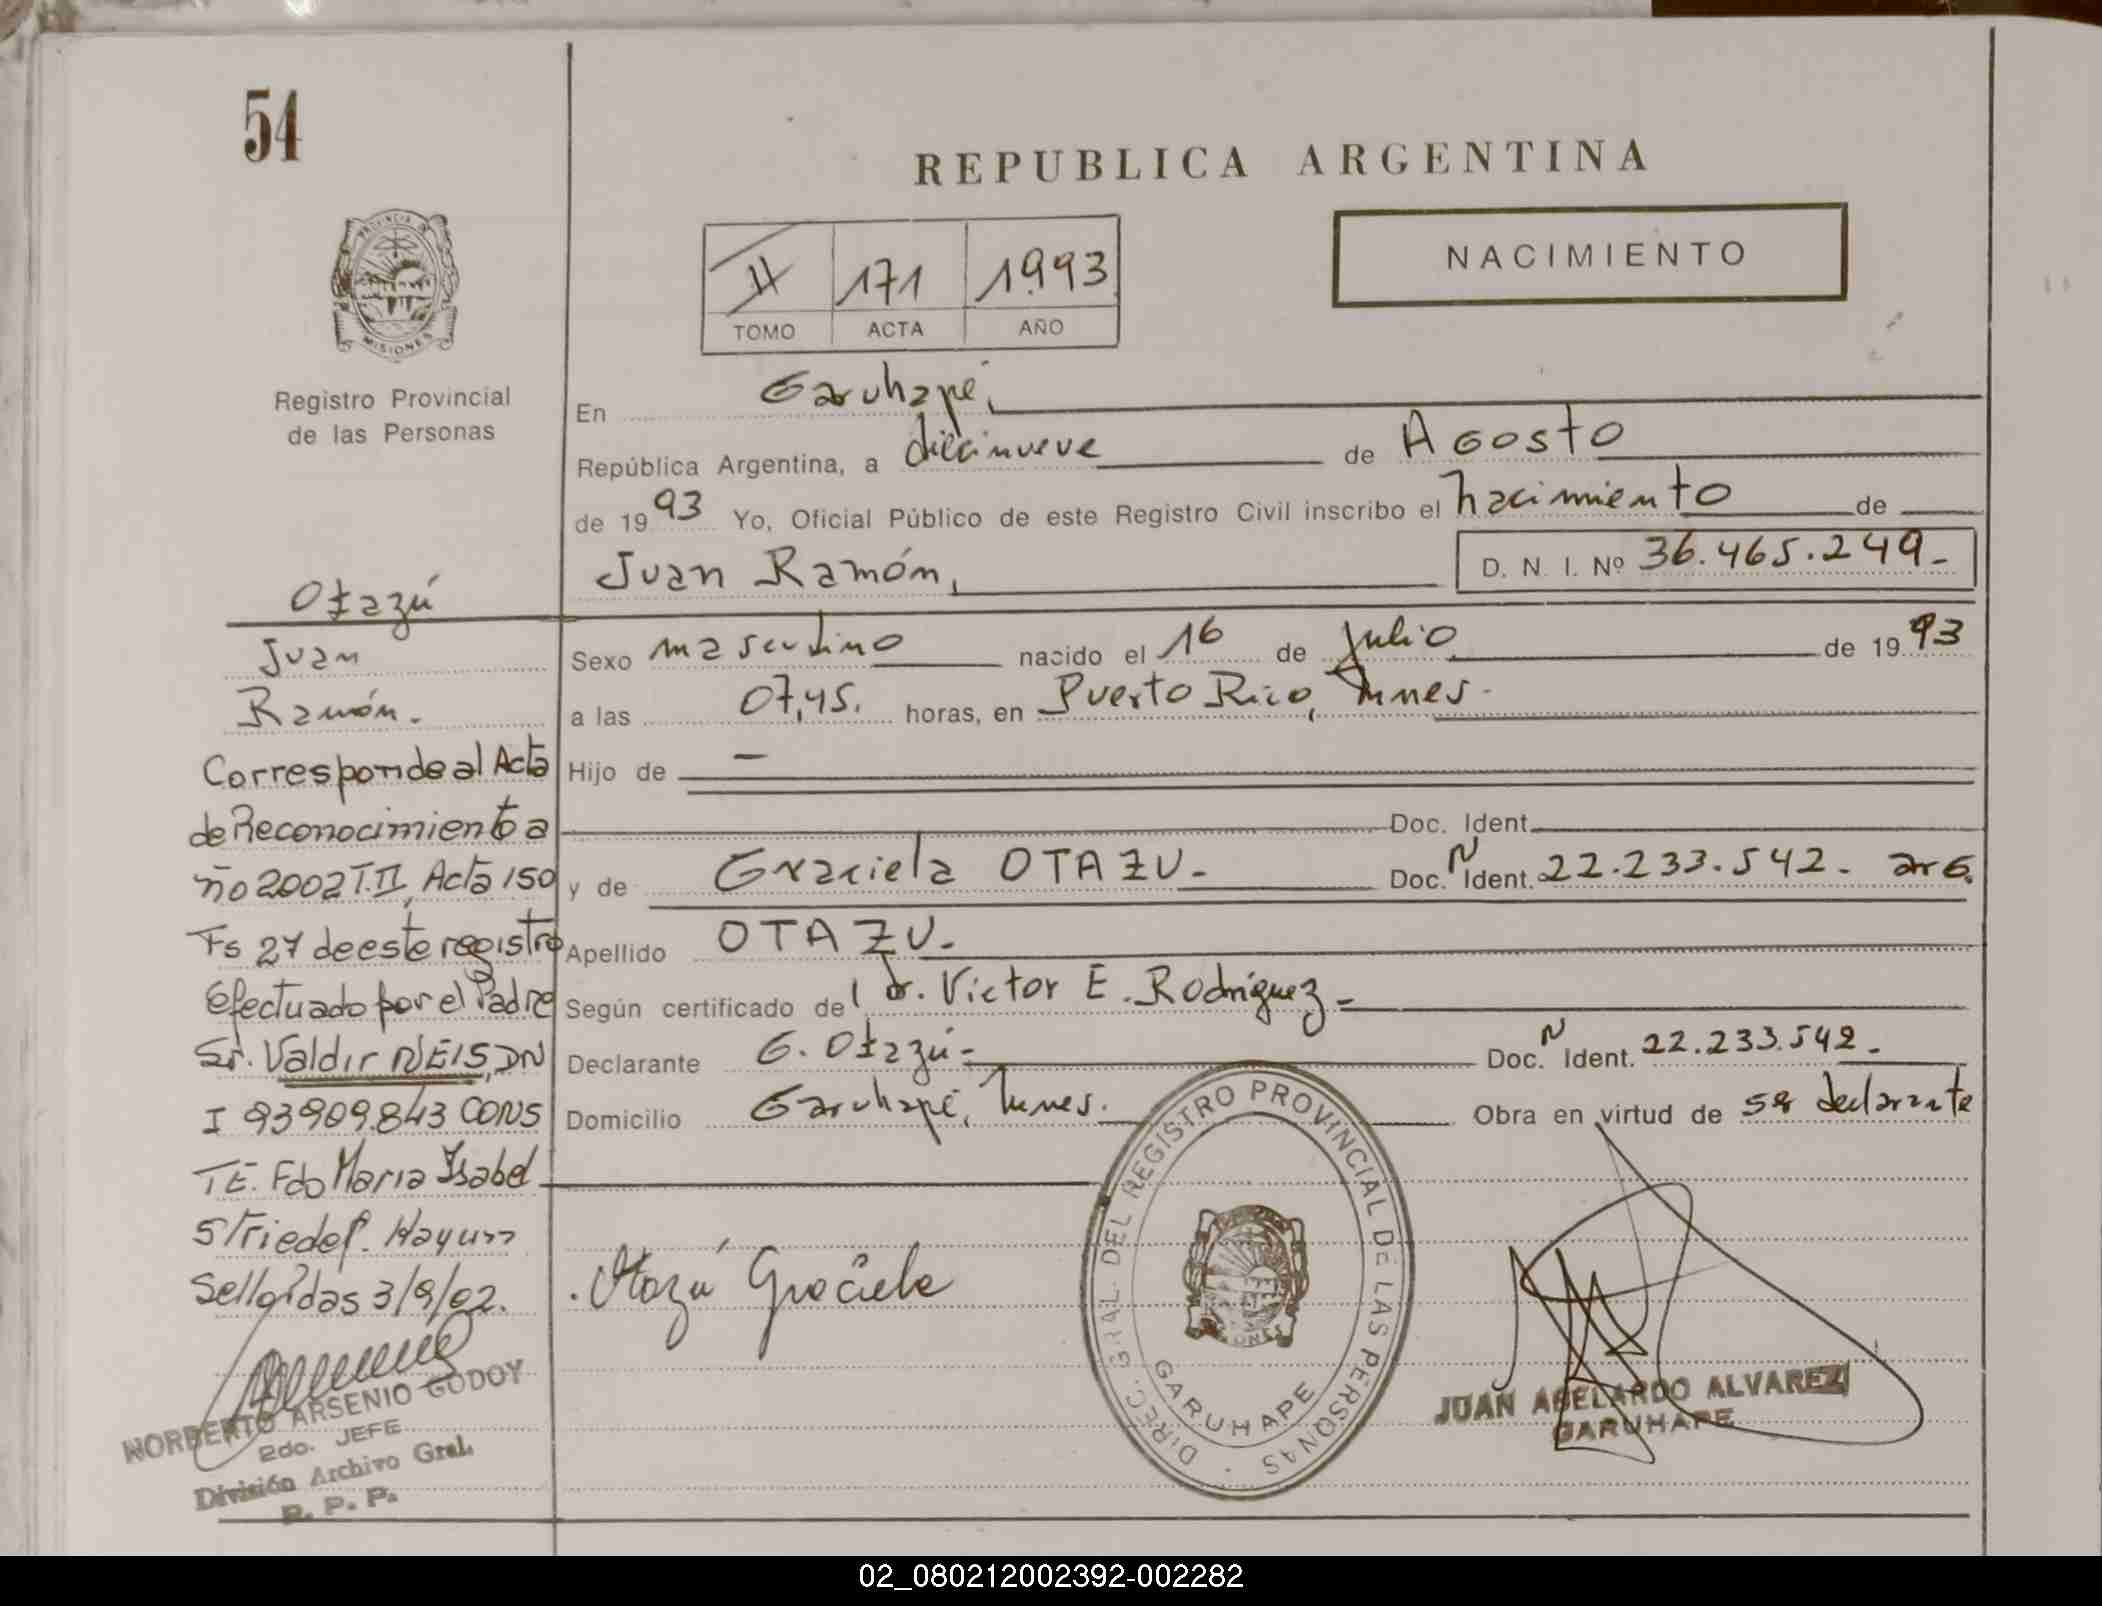 54
REPUBLICA ARGENTINA
NACIMIENTO
II 171 1993
TOMO ACTA AÑO
PROVINCIA DE
MISIONES
Registro Provincial
de las Personas
En Garuhapé,
República Argentina, a diecinueve de Agosto
de 1993 Yo, Oficial Público de este Registro Civil inscribo el nacimiento de
Juan Ramón, D. N. I. Nº 36.465.249.-
Sexo masculino nacido el 16 de Julio de 1993
a las 07,45. horas, en Puerto Rico,
Hijo de —
Doc. Ident.
y de Graciela OTAZU.- Doc. N Ident. 22.233.542.- arg.
Apellido OTAZU.-
Según certificado del dr. Victor E. Rodríguez-
Declarante G. Otazú- Doc. N Ident. 22.233.542.-
Domicilio Garuhapé, Obra en virtud de ser declarante
Otazú Graciela
DIREC. GRAL. DEL REGISTRO PROVINCIAL DE LAS PERSONAS
GARUHAPE
JUAN ABELARDO ALVAREZ
GARUHAPE
Otazú
Juan
Ramón.
Corresponde al Acta
de Reconocimiento a
ño 2002 T.II, Acta 150
Fs 27 de este registro
efectuado por el Padre
Sr. Valdir NEIS, DN
I 93909.843 CONS
TE. Fdo Maria Isabel
Striedef. Hay un
Sello Ddas 3/9/02.
NORBERTO ARSENIO GODOY
2do. JEFE
División Archivo Gral.
R. P. P.
02_080212002392-002282